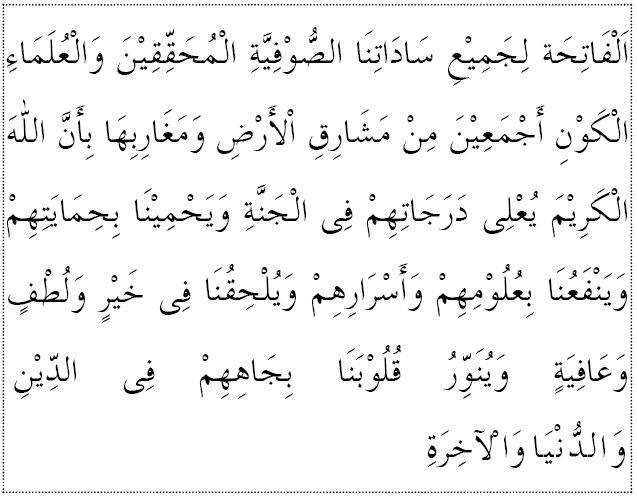 اَلْفَاتِحَة لِجَمِيْعِ سَادَاتِنَا الصُّوْفِيَّةِ الْمُحَقِّقِيْنَ وَالْعُلَمَاءِ
الْكَوْنِ أَجْمَعِيْنَ مِنْ مَشَارِقِ اْلأَرْضِ وَمَغَارِبِهَا بِأَنَّ اللهَ
الْكَرِيْمَ يُعْلِى دَرَجَاتِهِمْ فِى الْجَنَّةِ وَيَحْمِيْنَا بِحِمَايَتِهِمْ
وَيَنْفَعُنَا بِعُلُوْمِهِمْ وَأَسْرَارِهِمْ وَيُلْحِقُنَا فِى خَيْرٍ وَلُطْفٍ
وَعَافِيَةٍ وَيُنَوِّرُ قُلُوْبَنَا بِجَاهِهِمْ فِى الدِّيْنِ
وَالدُّنْيَا وَاْلآخِرَةِ